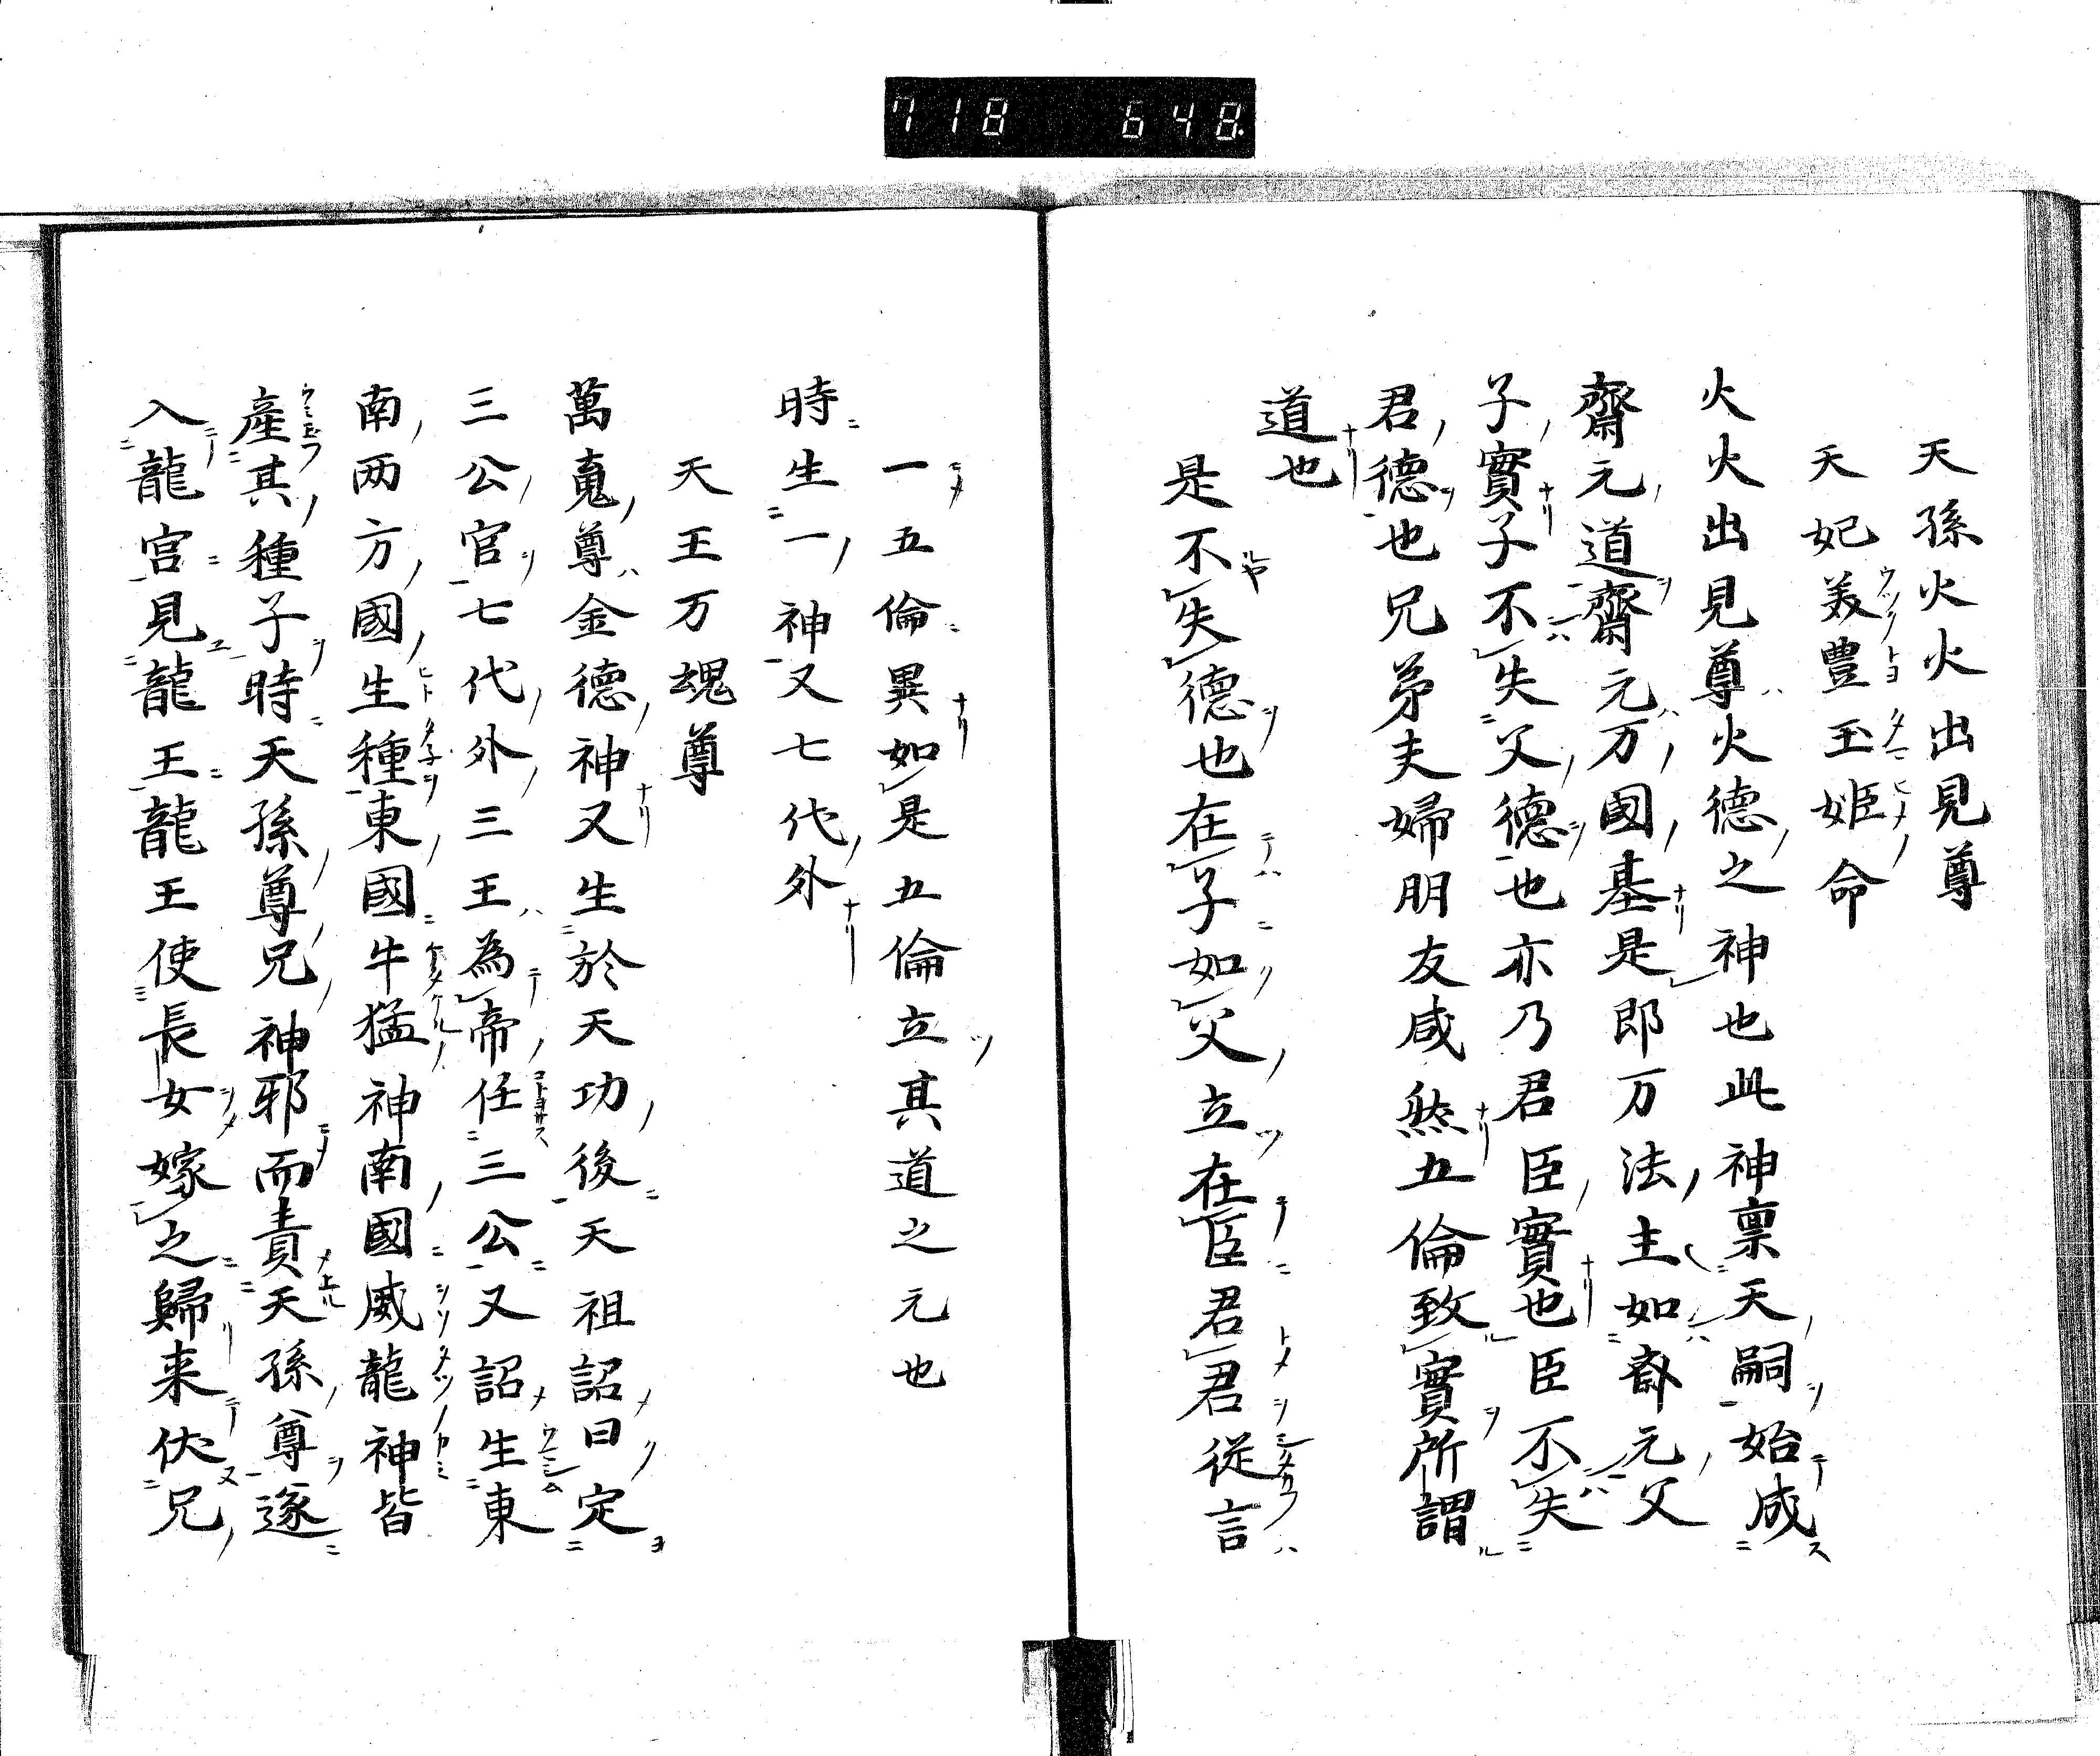 718 648
天孫火火出見尊
天妃美豊玉姫命
火火出見尊火德之神也此神禀天嗣始成
齋元道齋元万國基是即万法主如齋元父
子實子不失父德也亦乃君臣實也臣不失
君德也兄弟夫婦朋友咸然五倫致實所謂
道也
是不失德也在子如父立在臣君君從言
一五倫異如是五倫立其道之元也
時生一神又七代外
天王万魂尊
萬䰟尊金德神又生於天功後天祖詔曰定
三公官七代外三王為帝任三公又詔生東
南两方國生種東國牛猛神南國威龍神皆
產其種子時天孫尊兄神邪而責天孫尊遂
入龍宮見龍王龍王使長女嫁之歸来伏兄